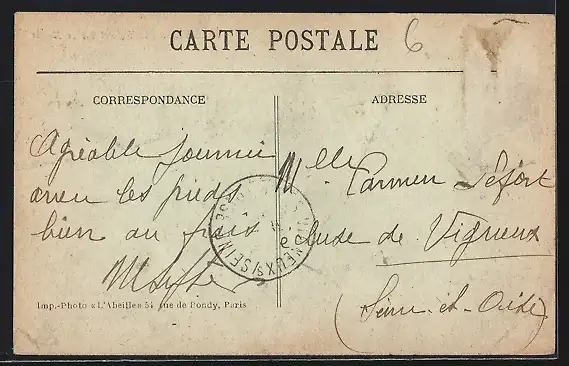 CARTE POSTALE
6
CORRESPONDANCE
ADRESSE
Agréable journée
avec les pieds
bien au frais
Mlle Carmen Lefort
Ecluse de Vigneux
(Seine-et-Oise)
VIGNEUX S/SEINE
Imp.-Photo « L'Abeille » 54 rue de Bondy, Paris